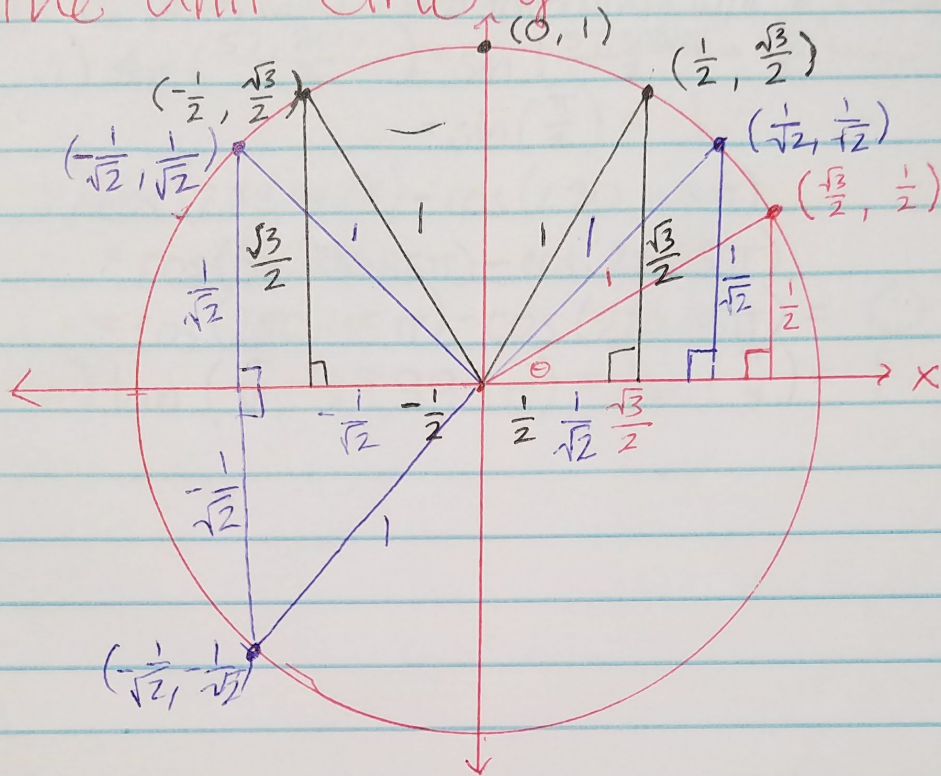 The unit circle
(0, 1)
(-1/2, √3/2)
(1/2, √3/2)
(-1/√2, 1/√2)
(1/√2, 1/√2)
(√3/2, 1/2)
1/√2
√3/2
1
1
1
1
1
√3/2
1/√2
1/2
θ
x
-1/√2
-1/2
1/2
1/√2
√3/2
-1/√2
1
(-1/√2, -1/√2)